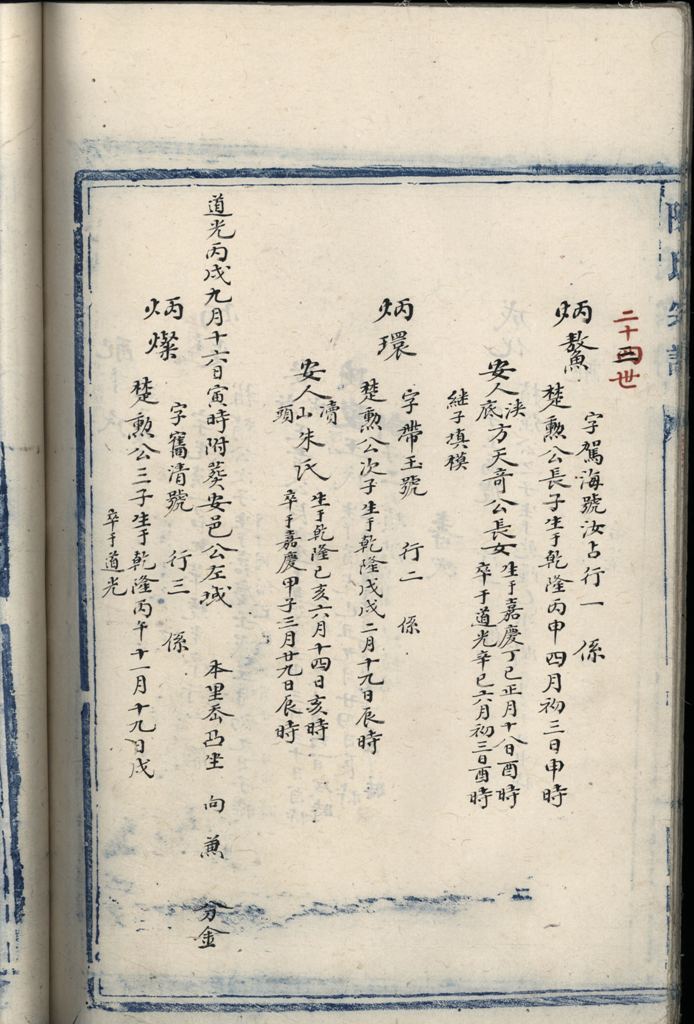 二十四世
炳鰲
字駕海號汝占行一 係
楚勲公長子生于乾隆丙申四月初三日申時
安人浹底方天奇公長女生于嘉慶丁巳正月十八日酉時
卒于道光辛巳六月初三日酉時
継子填模
炳環
字帶玉號 行二 係
楚勲公次子生于乾隆戊戌二月十九日辰時
安人瀆山頭朱氏生于乾隆己亥六月十四日亥時
卒于嘉慶甲子三月廿九日辰時
道光丙戌九月十六日寅時附葵安邑公左域 本里岙凸坐 向 兼 分金
炳燦
字寯清號 行三 係
楚勲公三子生于乾隆丙午十一月十九日戌
卒于道光
二